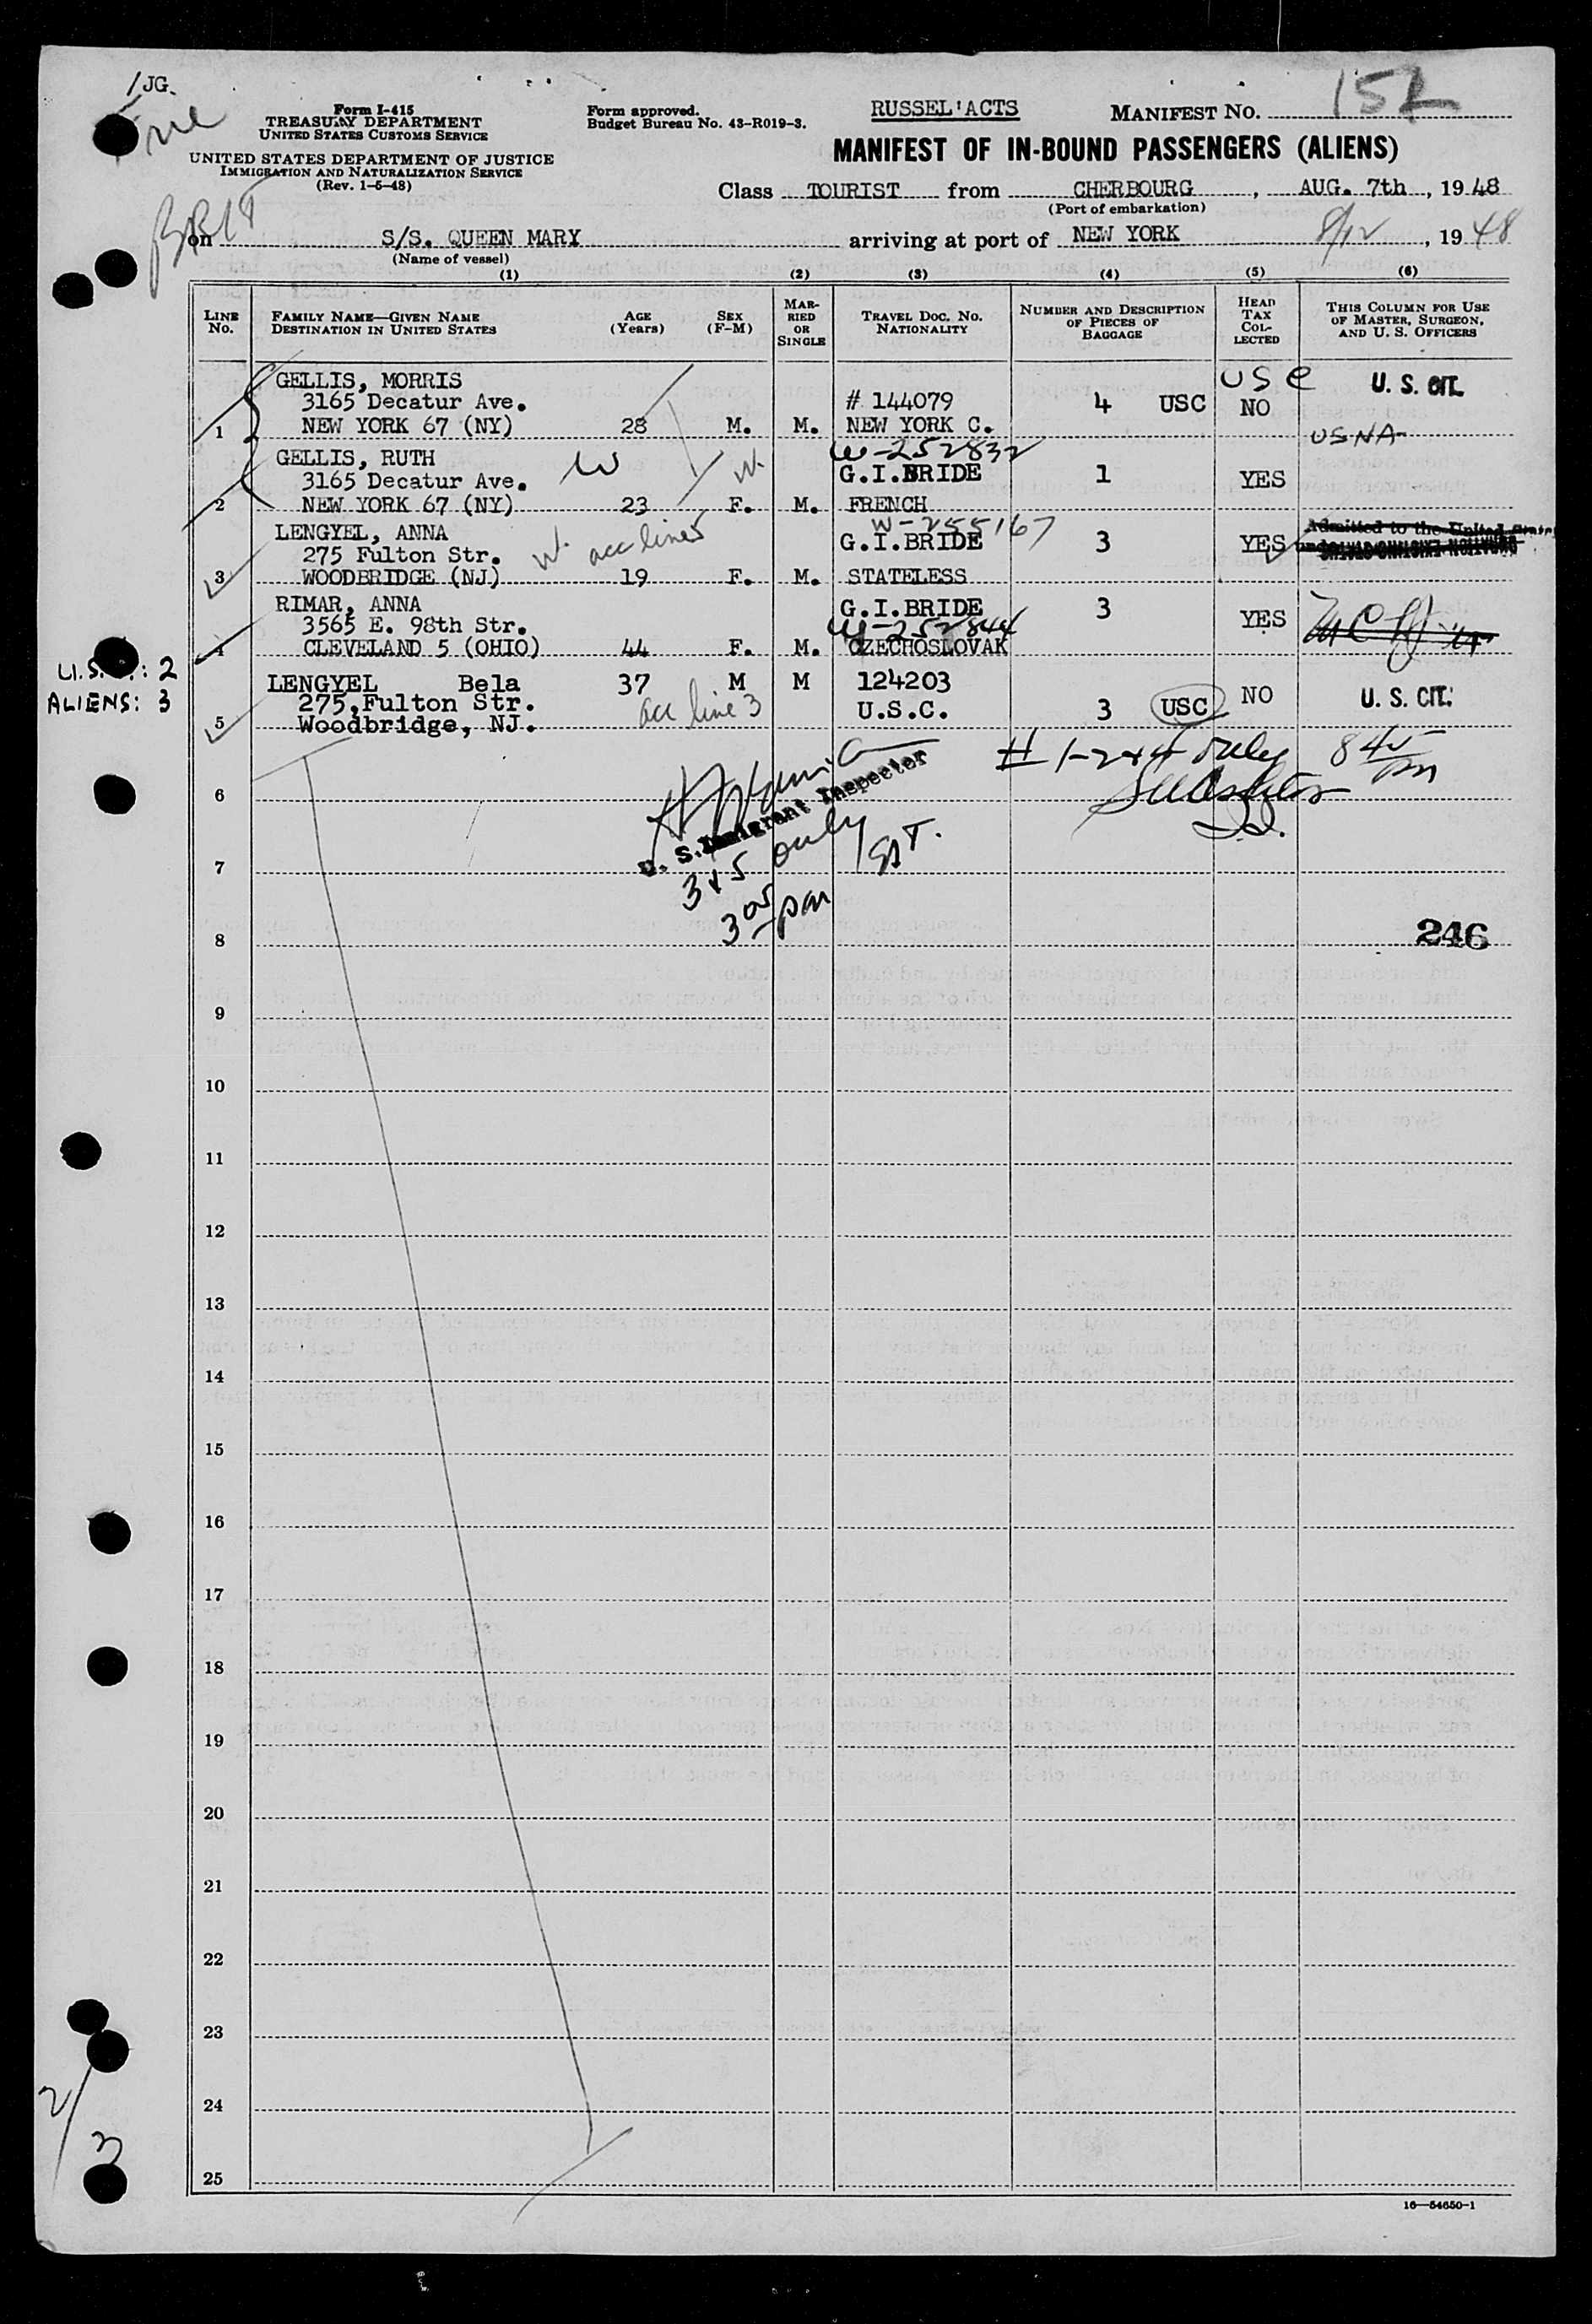 /JG.
Form I-415
TREASURY DEPARTMENT
UNITED STATES CUSTOMS SERVICE
UNITED STATES DEPARTMENT OF JUSTICE
IMMIGRATION AND NATURALIZATION SERVICE
(Rev. 1-5-48)
Form approved.
Budget Bureau No. 43-R019-3.
RUSSEL'ACTS
MANIFEST NO. 152
MANIFEST OF IN-BOUND PASSENGERS (ALIENS)
Class TOURIST from CHERBOURG, AUG. 7th, 1948
(Port of embarkation)
on S/S. QUEEN MARY arriving at port of NEW YORK 8/12, 1948
(Name of vessel)
(1) (2) (3) (4) (5) (6)
LINE No.
FAMILY NAME—GIVEN NAME
DESTINATION IN UNITED STATES
AGE (Years)
SEX (F-M)
MARRIED OR SINGLE
TRAVEL DOC. NO.
NATIONALITY
NUMBER AND DESCRIPTION OF PIECES OF BAGGAGE
HEAD TAX COLLECTED
THIS COLUMN FOR USE OF MASTER, SURGEON, AND U. S. OFFICERS
GELLIS, MORRIS USC U. S. CIT.
3165 Decatur Ave. # 144079 4 USC NO
1 NEW YORK 67 (NY) 28 M. M. NEW YORK C. USNA
GELLIS, RUTH W W. W-252832
3165 Decatur Ave. G.I.BRIDE 1 YES
2 NEW YORK 67 (NY) 23 F. M. FRENCH
LENGYEL, ANNA W-255167
275 Fulton Str. W. acc line 5 G.I.BRIDE 3 YES Admitted to the United States
3 WOODBRIDGE (NJ) 19 F. M. STATELESS
RIMAR, ANNA G.I.BRIDE 3 YES
3565 E. 98th Str. W-252844
4 CLEVELAND 5 (OHIO) 44 F. M. CZECHOSLOVAK
U.S.C.: 2
ALIENS: 3
LENGYEL Bela 37 M M 124203 NO U. S. CIT.
275,Fulton Str. acc line 3 U.S.C. 3 USC
5 Woodbridge, NJ.
# 1-2+4 only 8 45 pm
U. S. Immigrant Inspector
3+5 only
3 05 pm
6
7
8
246
9
10
11
12
13
14
15
16
17
18
19
20
21
22
23
24
25
2/3
16—54650-1